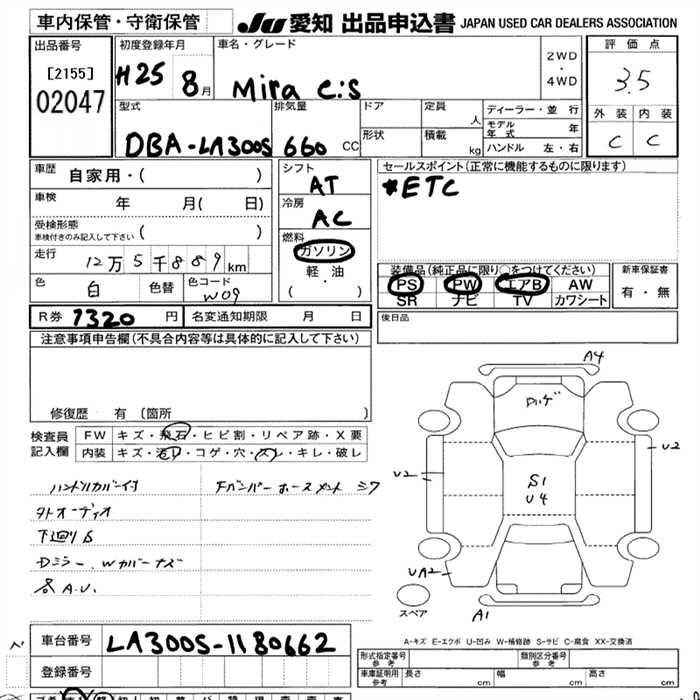 車内保管・守衛保管
JU 愛知 出品申込書 JAPAN USED CAR DEALERS ASSOCIATION
出品番号
[2155]
02047
初度登録年月
H25 8月
車名・グレード
Mira e:s
2WD
・
4WD
評価点
3.5
外装 内装
C C
型式
DBA-LA300S
排気量
660 CC
ドア
定員
人
形状
積載
kg
ディーラー・並行
モデル年式 年
ハンドル 左・右
車歴 自家用・( )
車検 年 月( 日)
受検形態
車検付きのみ記入して下さい ( )
走行 12万5千889km
色 白 色替 色コード W09
シフト
AT
冷房
AC
燃料
ガソリン
軽・油
( ・ )
セールスポイント(正常に機能するものに限ります)
*ETC
装備品(純正品に限り○をつけてください)
PS PW エアB AW
SR ナビ TV カワシート
新車保証書
有・無
後日品
R券 7320円 名変通知期限 月 日
注意事項申告欄(不具合内容等は具体的に記入して下さい)
修復歴 有(箇所
検査員
記入欄
FW キズ・飛石・ヒビ割・リペア跡・X要
内装 キズ・汚れ・コゲ・穴・スレ・キレ・破レ
ハンドルカバー付
外オーディオ
下廻りS
Dミラー、Wカバーキズ
各A.U.
A4
U2
U2
S1
U4
UA2
A1
スペア
A-キズ E-エクボ U-凹み W-補修跡 S-サビ C-腐食 XX-交換済
車台番号 LA300S-1180662
登録番号
形式指定番号 参考
類別区分番号 参考
車庫証明用 参考 長さ cm 幅 cm 高さ cm